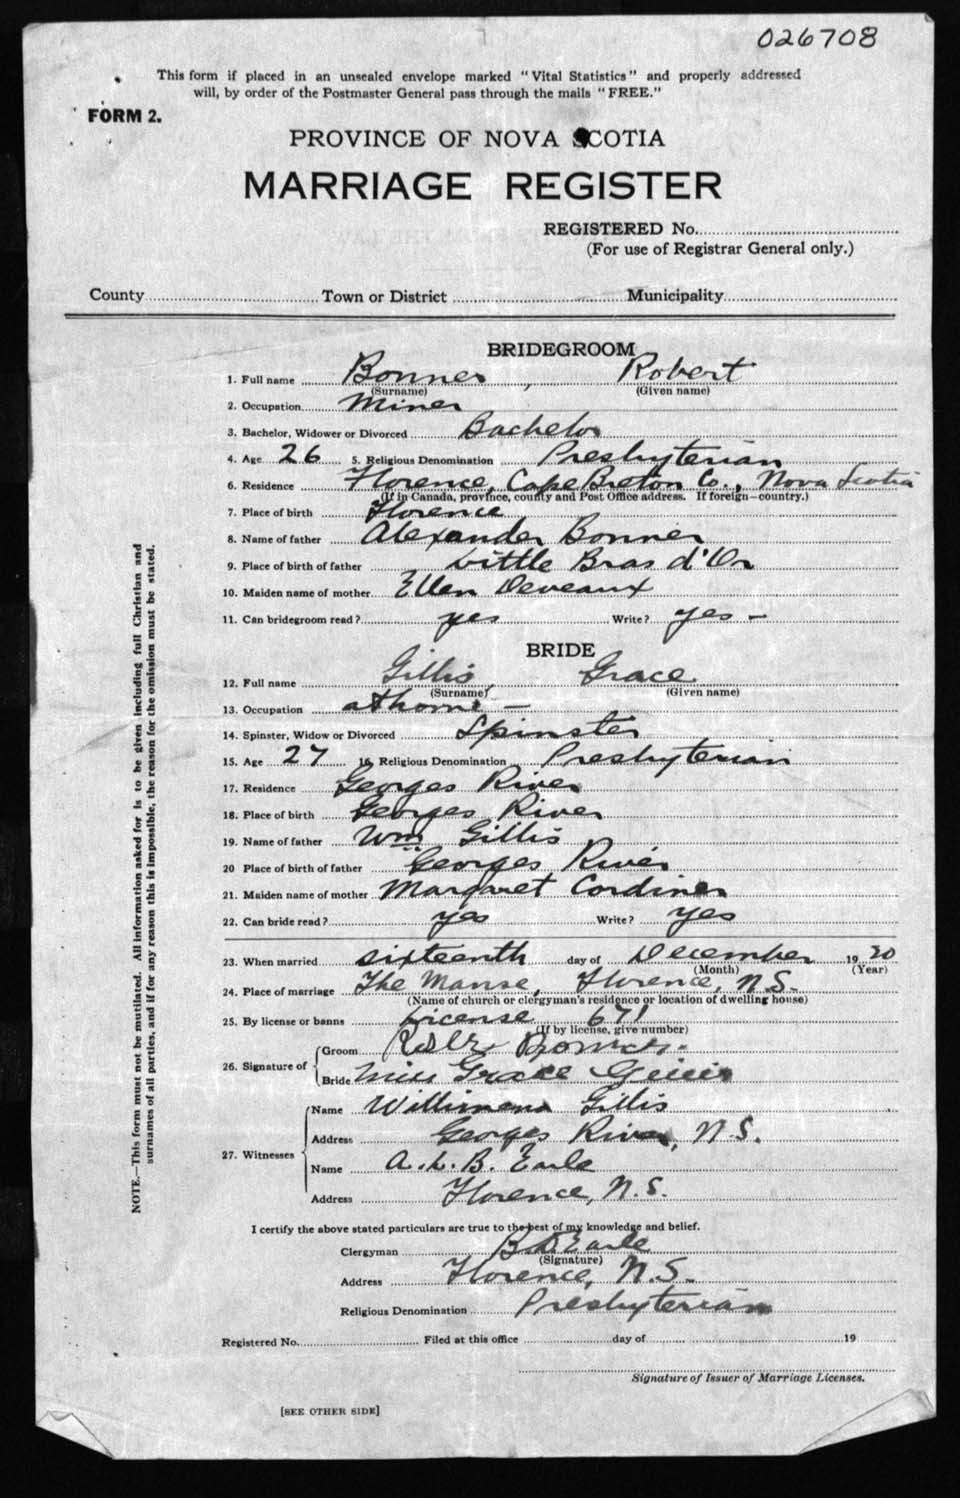 026708
This form if placed in an unsealed envelope marked "Vital Statistics" and properly addressed
will, by order of the Postmaster General pass through the mails "FREE."
FORM 2.
PROVINCE OF NOVA SCOTIA
MARRIAGE REGISTER
REGISTERED No.
(For use of Registrar General only.)
County Town or District Municipality
BRIDEGROOM
1. Full name Bonner, Robert
(Surname) (Given name)
2. Occupation Miner
3. Bachelor, Widower or Divorced Bachelor
4. Age 26 5. Religious Denomination Presbyterian
6. Residence Florence, Cape Breton Co., Nova Scotia
(If in Canada, province, county and Post Office address. If foreign—country.)
7. Place of birth Florence
8. Name of father Alexander Bonner
9. Place of birth of father Little Bras d'Or
10. Maiden name of mother Ellen Deveaux
11. Can bridegroom read? yes Write? yes —
BRIDE
12. Full name Gillis, Grace
(Surname) (Given name)
13. Occupation at home —
14. Spinster, Widow or Divorced Spinster
15. Age 27 16. Religious Denomination Presbyterian
17. Residence Georges River
18. Place of birth Georges River
19. Name of father Wm Gillis
20 Place of birth of father Georges River
21. Maiden name of mother Margaret Cordiner
22. Can bride read? yes Write? yes
23. When married sixteenth day of December 1920
(Month) (Year)
24. Place of marriage The Manse, Florence, N.S.
(Name of church or clergyman's residence or location of dwelling house)
25. By license or banns License 671
(If by license, give number)
26. Signature of
Groom Bonner.
Bride Miss Grace Gillis
27. Witnesses
Name Gillis
Address Georges River, N.S.
Name A. L. B. Earle
Address Florence, N.S.
I certify the above stated particulars are true to the best of my knowledge and belief.
Clergyman B D Earle
(Signature)
Address Florence, N.S.
Religious Denomination Presbyterian
Registered No. Filed at this office day of 19
Signature of Issuer of Marriage Licenses.
[SEE OTHER SIDE]
NOTE.—This form must not be mutilated. All information asked for is to be given including full Christian and
surnames of all parties, and if for any reason this is impossible, the reason for the omission must be stated.